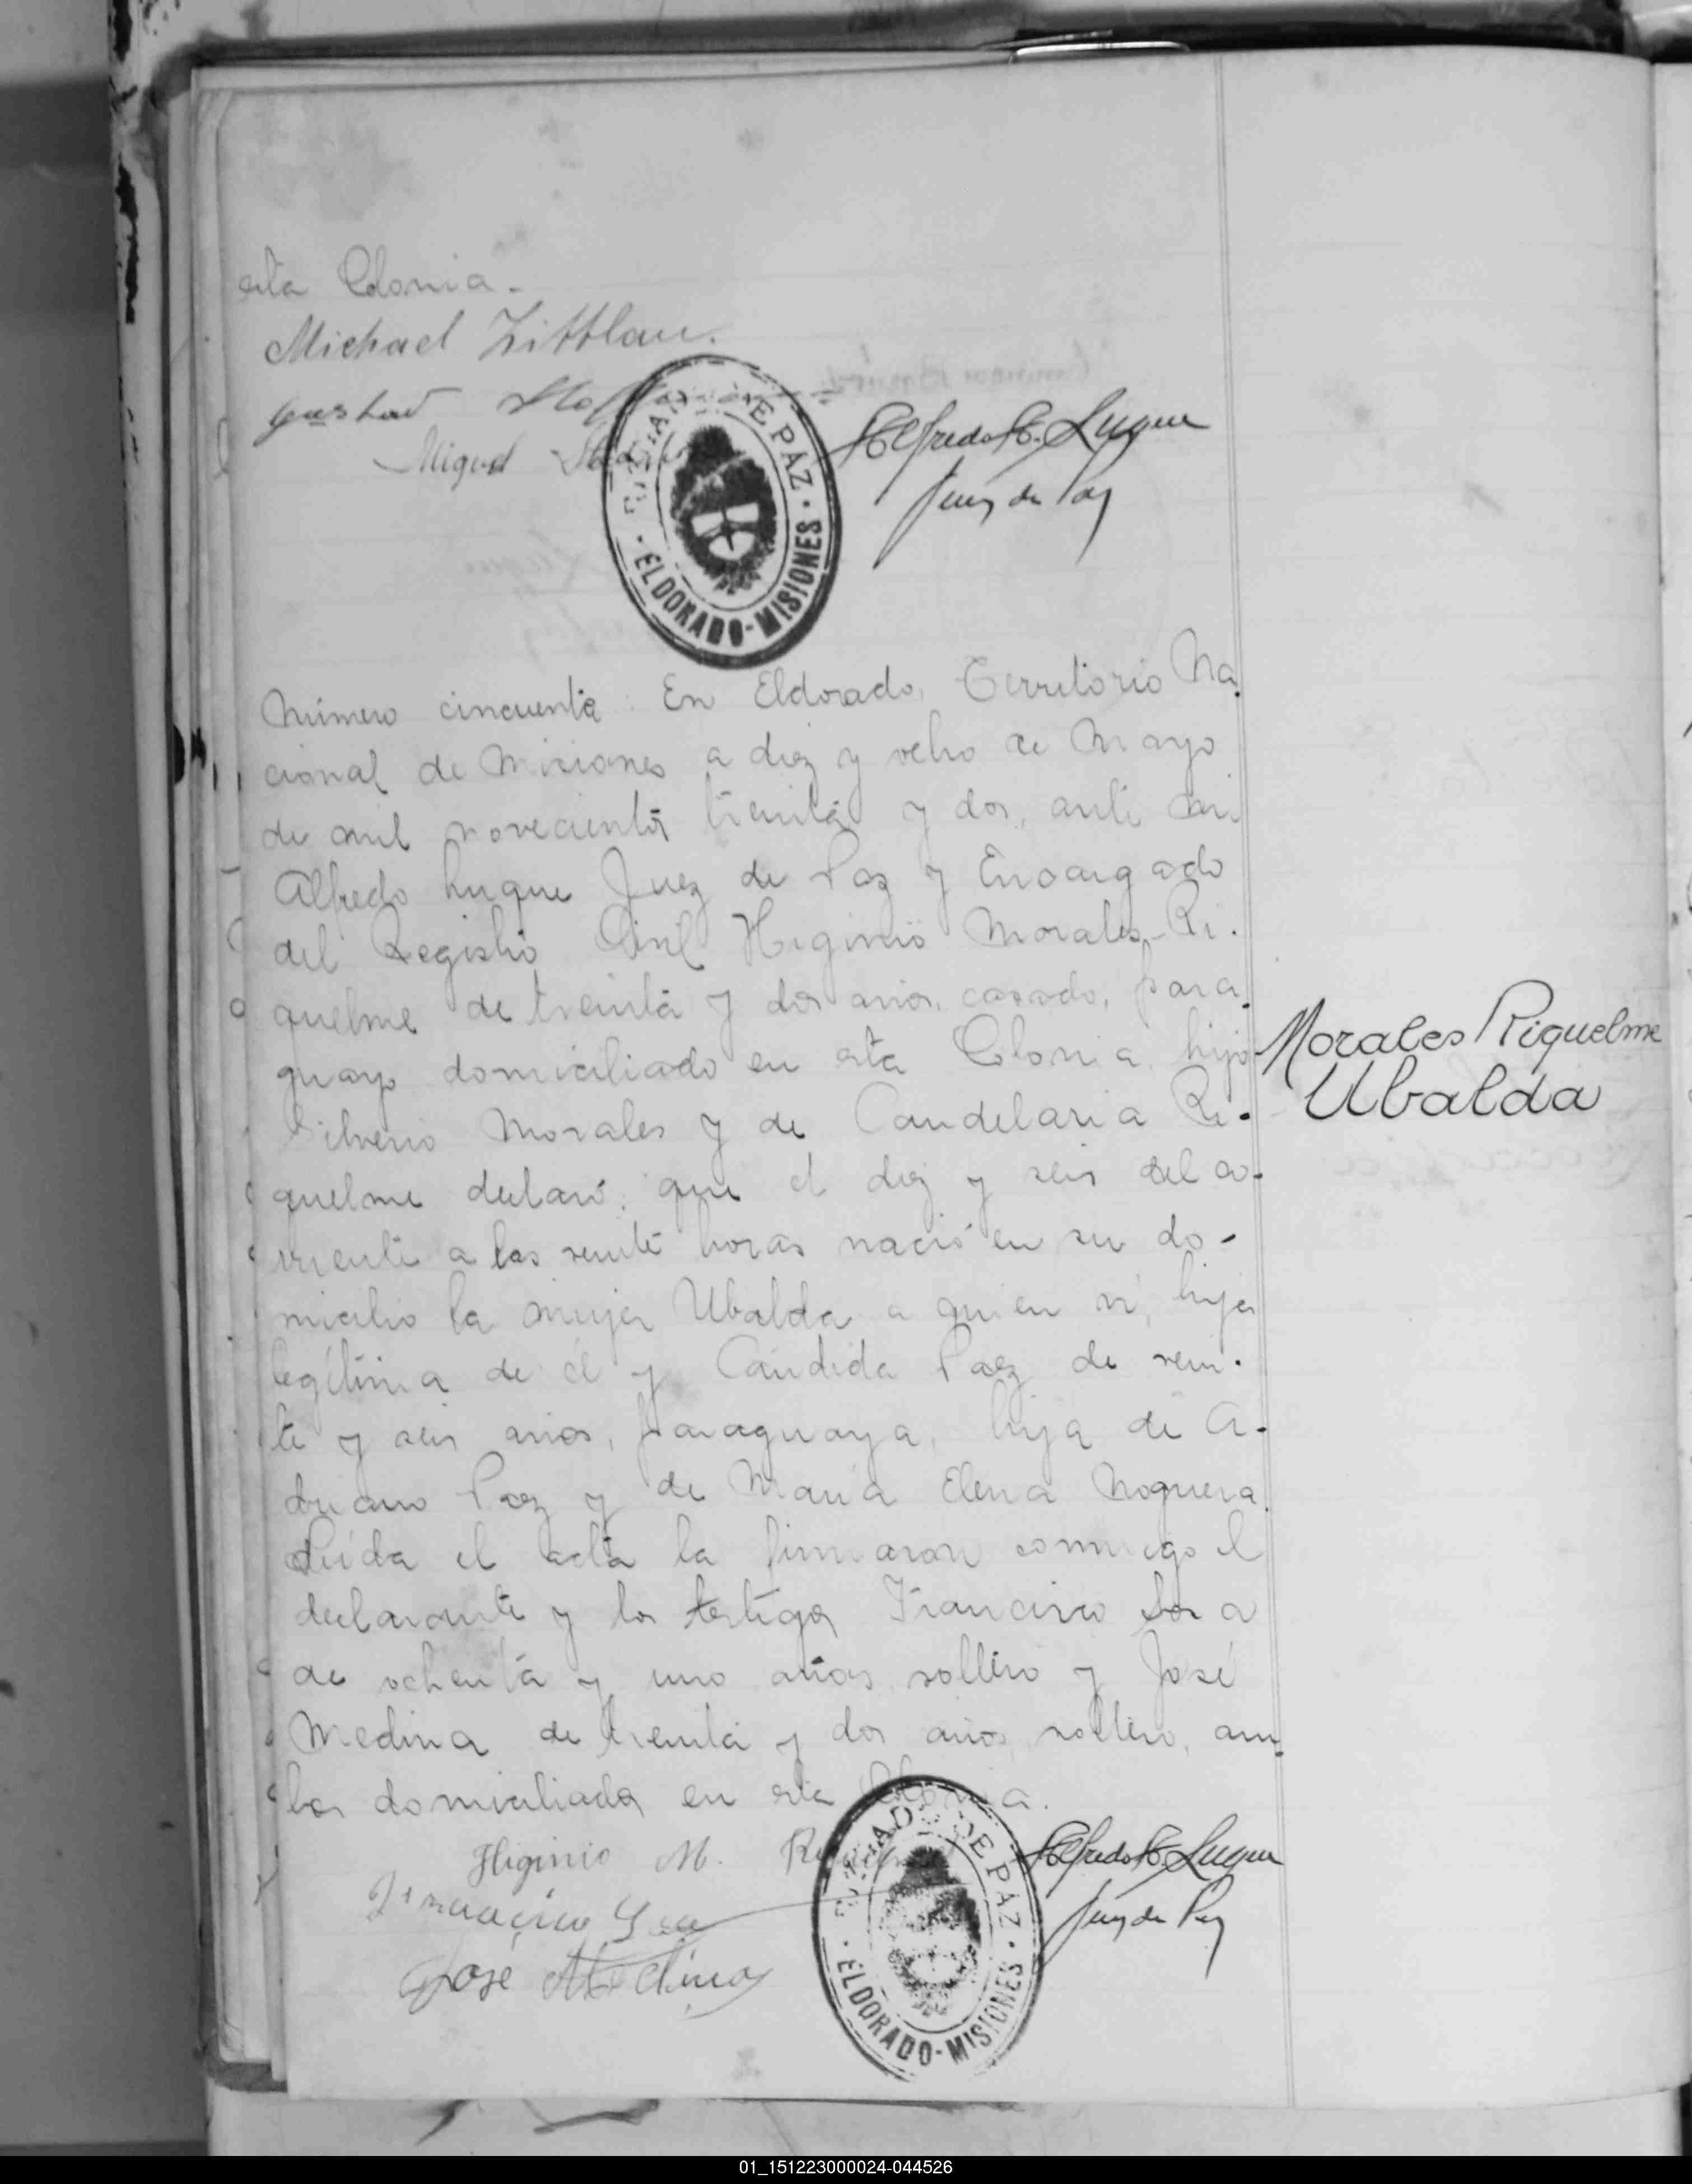 esta Colonia.-
Michael Zittlau.
Gustav
Miguel
DE PAZ
· ELDORADO-MISIONES ·
Alfredo R. Luque
Juez de Paz
Número cincuenta. En Eldorado, Territorio Na-
cional de Misiones a diez y ocho de Mayo
de mil novecientos treinta y dos, ante mi
Alfredo Luque Juez de Paz y Encargado
del Registro Civil Higinio Morales Ri-
quelme de treinta y dos años, casado, para-
guayo domiciliado en esta Colonia, hijo
Silverio Morales y de Candelaria Ri-
quelme declaró: que el diez y seis del co-
rriente a las veinte horas nació en su do-
micilio la mujer Ubalda a quien vi, hija
legítima de él y Cándida Paez de vein-
te y seis años, paraguaya, hija de A-
driano Paez y de María Elena Noguera.
Leída el acta la firmaron conmigo el
declarante y los testigos Francisco
de ochenta y uno años, soltero y José
Medina de treinta y dos años, soltero, am-
bos domiciliados en esta Colonia.
Morales Riquelme
Ubalda
Higinio M.
Francisco
José Medina
JUZGADO DE PAZ
· ELDORADO-MISIONES ·
Alfredo R. Luque
Juez de Paz
01_151223000024-044526